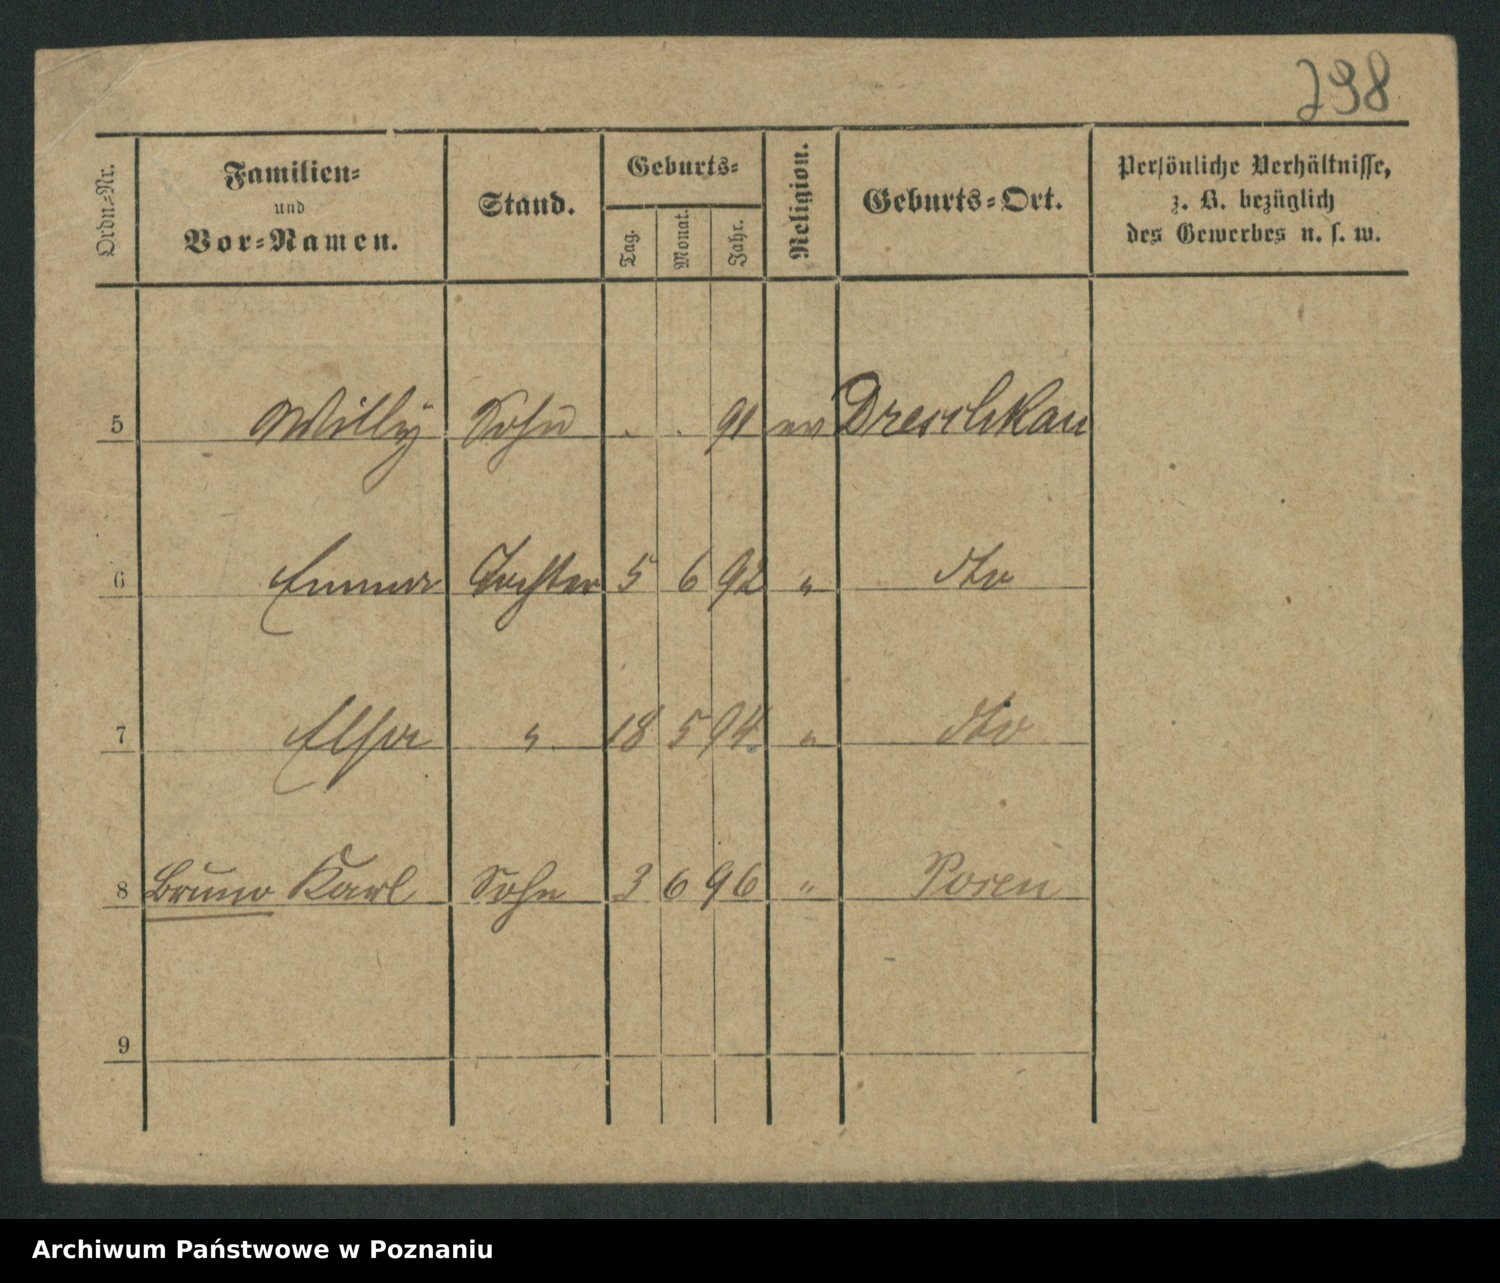 298
Ordn.-Nr. Familien- und Vor-Namen. Stand. Geburts- Tag. Monat. Jahr. Religion. Geburts-Ort. Persönliche Verhältnisse, z. B. bezüglich des Gewerbes u. s. w.
5 Willy Sohn . . 91 ev Dreschkau
6 Emma Tochter 5 6 92 " dto
7 Elsa " 18 5 94 " dto
8 Bruno Karl Sohn 3 6 96 " Posen
9
Archiwum Państwowe w Poznaniu